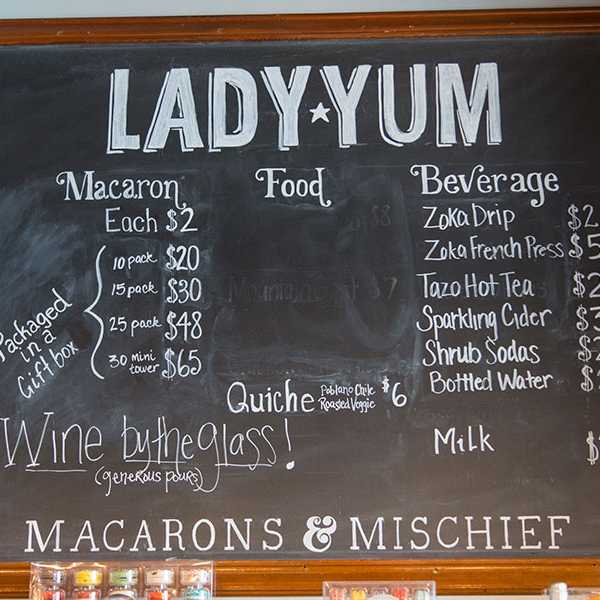 LADY★YUM
Macaron
Each $2
10 pack $20
15 pack $30
25 pack $48
30 mini tower $65
Packaged in a Giftbox
Food
Quiche Poblano Chile Roasted Veggie $6
Beverage
Zoka Drip $2
Zoka French Press $5
Tazo Hot Tea $2
Sparkling Cider
Shrub Sodas
Bottled Water
Milk
Wine by the glass!
(generous pours)
MACARONS & MISCHIEF